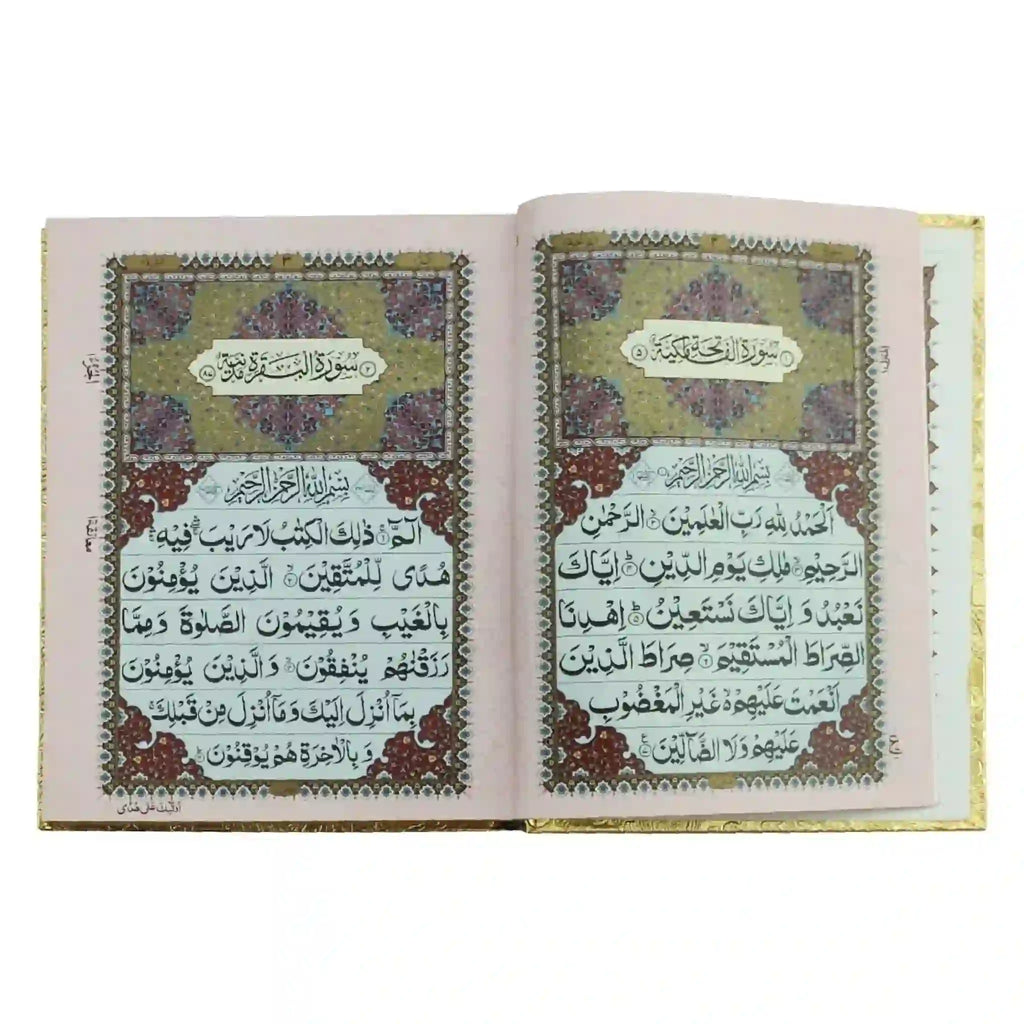 ٢
سورة الفاتحة مكية
١
٥
بِسْمِ اللهِ الرَّحْمٰنِ الرَّحِيْمِ
اَلْحَمْدُ لِلّٰهِ رَبِّ الْعٰلَمِيْنَ ۙ الرَّحْمٰنِ
الرَّحِيْمِ ۙ مٰلِكِ يَوْمِ الدِّيْنِ ۗ اِيَّاكَ
نَعْبُدُ وَ اِيَّاكَ نَسْتَعِيْنُ ۗ اِهْدِنَا
الصِّرَاطَ الْمُسْتَقِيْمَ ۙ صِرَاطَ الَّذِيْنَ
اَنْعَمْتَ عَلَيْهِمْ ۙ غَيْرِ الْمَغْضُوْبِ
عَلَيْهِمْ وَلَا الضَّآلِّيْنَ
٣
سورة البقرة مدنية
٢
٨٧
بِسْمِ اللهِ الرَّحْمٰنِ الرَّحِيْمِ
الٓمّٓ ۚ ذٰلِكَ الْكِتٰبُ لَا رَيْبَ فِيْهِ
هُدًى لِّلْمُتَّقِيْنَ ۙ الَّذِيْنَ يُؤْمِنُوْنَ
بِالْغَيْبِ وَ يُقِيْمُوْنَ الصَّلٰوةَ وَ مِمَّا
رَزَقْنٰهُمْ يُنْفِقُوْنَ ۙ وَ الَّذِيْنَ يُؤْمِنُوْنَ
بِمَآ اُنْزِلَ اِلَيْكَ وَ مَآ اُنْزِلَ مِنْ قَبْلِكَ ۚ
وَ بِالْاٰخِرَةِ هُمْ يُوْقِنُوْنَ
اُولٰٓئِكَ عَلٰى هُدًى